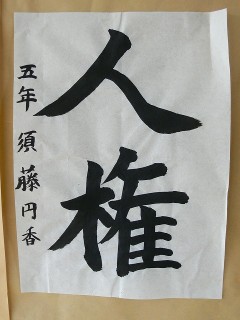 人権
五年 須藤円香